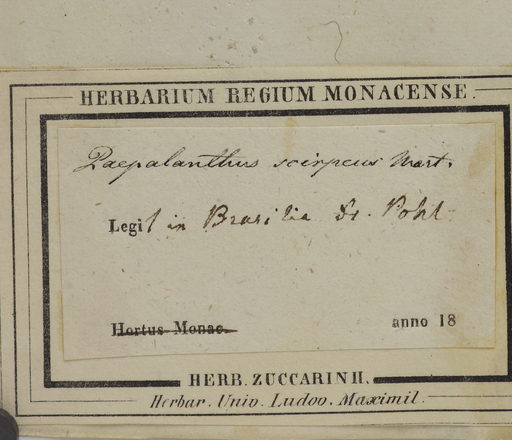 HERBARIUM REGIUM MONACENSE.
Paepalanthus scirpeus Mart.
Legit in Brasilia Dr. Pohl
Hortus Monac.
anno 18
HERB. ZUCCARINII.
Herbar. Univ. Ludov. Maximil.